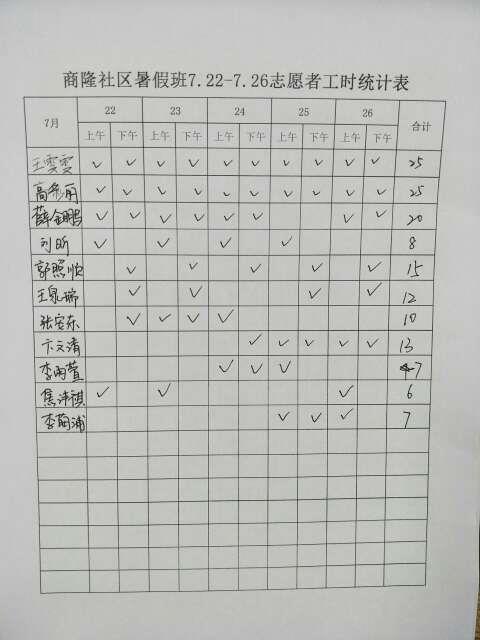 商隆社区暑假班7.22-7.26志愿者工时统计表
7月 22 23 24 25 26 合计
上午 下午 上午 下午 上午 下午 上午 下午 上午 下午
王雯雯 ✓ ✓ ✓ ✓ ✓ ✓ ✓ ✓ ✓ ✓ 25
高希丽 ✓ ✓ ✓ ✓ ✓ ✓ ✓ ✓ ✓ ✓ 25
薛金鹏 ✓ ✓ ✓ ✓ ✓ ✓ ✓ ✓ 20
刘昕 ✓ ✓ ✓ ✓ 8
郭照顺 ✓ ✓ ✓ ✓ ✓ 15
王泉瑞 ✓ ✓ ✓ ✓ 12
张安东 ✓ ✓ ✓ ✓ 10
卞文清 ✓ ✓ ✓ ✓ ✓ 13
李雨萱 ✓ ✓ ✓ 7
焦沛祺 ✓ ✓ ✓ 6
李菊浦 ✓ ✓ ✓ 7